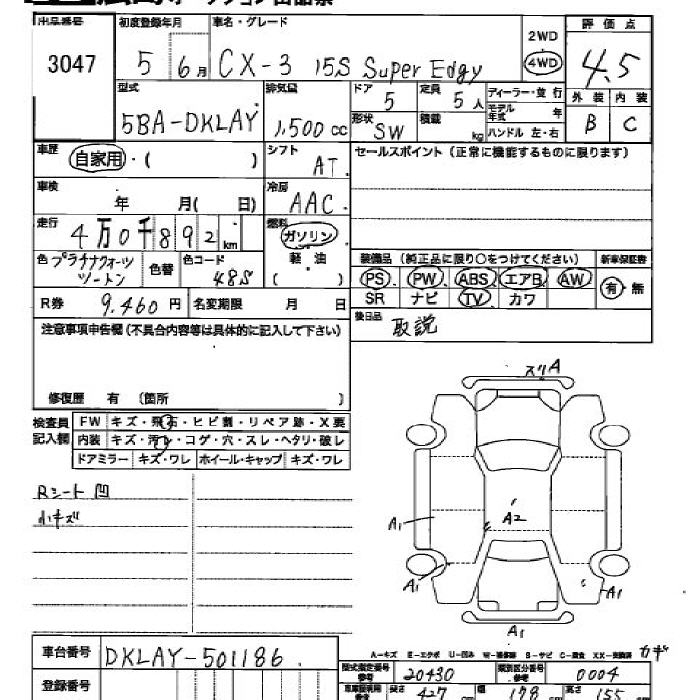 出品番号 初度登録年月 車名・グレード 評価点
3047 5 6月 CX-3 15S Super Edgy 2WD 4WD 4.5
型式 排気量 ドア 定員 ディーラー・並行 外装 内装
5BA-DKLAY 1,500 cc 5 5人 モデル年式 年 B C
形状 SW 積載 kg ハンドル 左・右
車歴 自家用・( ) シフト AT. セールスポイント(正常に機能するものに限ります)
車検 年 月( 日) 冷房 AAC.
走行 4万0千892km 燃料 ガソリン
軽・油
( )
色 プラチナクォーツツートン 色替 色コード 48S 装備品(純正品に限り○をつけてください) 新車保証書
PS. PW. ABS. エアB. AW 有・無
R券 9.460円 名変期限 月 日 SR ナビ TV カワ
注意事項申告欄(不具合内容等は具体的に記入して下さい) 後日品 取説
修復歴 有(箇所 )
検査員記入欄 FW キズ・飛石・ヒビ割・リペア跡・X要
内装 キズ・汚レ・コゲ・穴・スレ・ヘタリ・破レ
ドアミラー キズ・ワレ ホイール・キャップ キズ・ワレ
Rシート凹
小キズ
スリA
A2
A1
A1 A1
A1
A-キズ E-エクボ U-凹み S-サビ カギ
車台番号 DKLAY-501186. 型式指定番号 参考 20430 類別区分番号 参考 0004
登録番号 長さ 427 cm 幅 178 cm 高さ 155